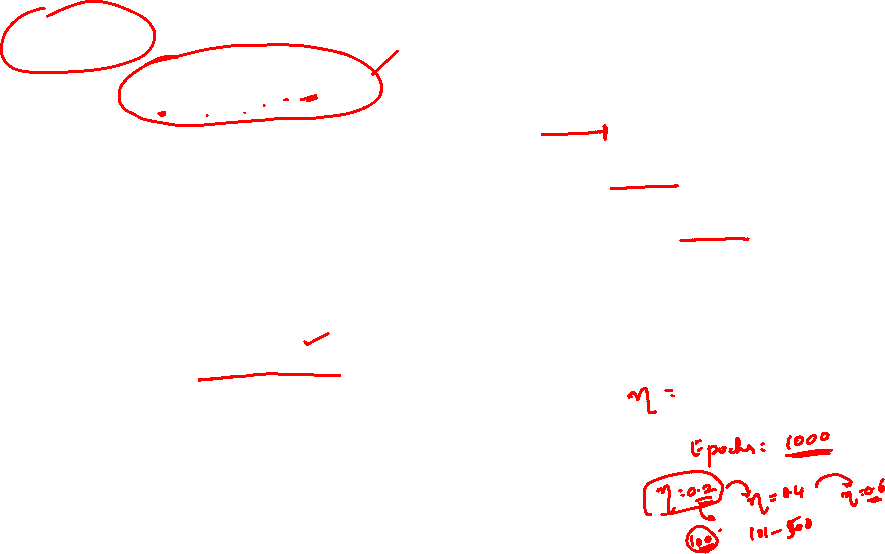 η =
Epochs: 1000
η = 0.2 η = 0.4 η = 0.6
100 101 - 500